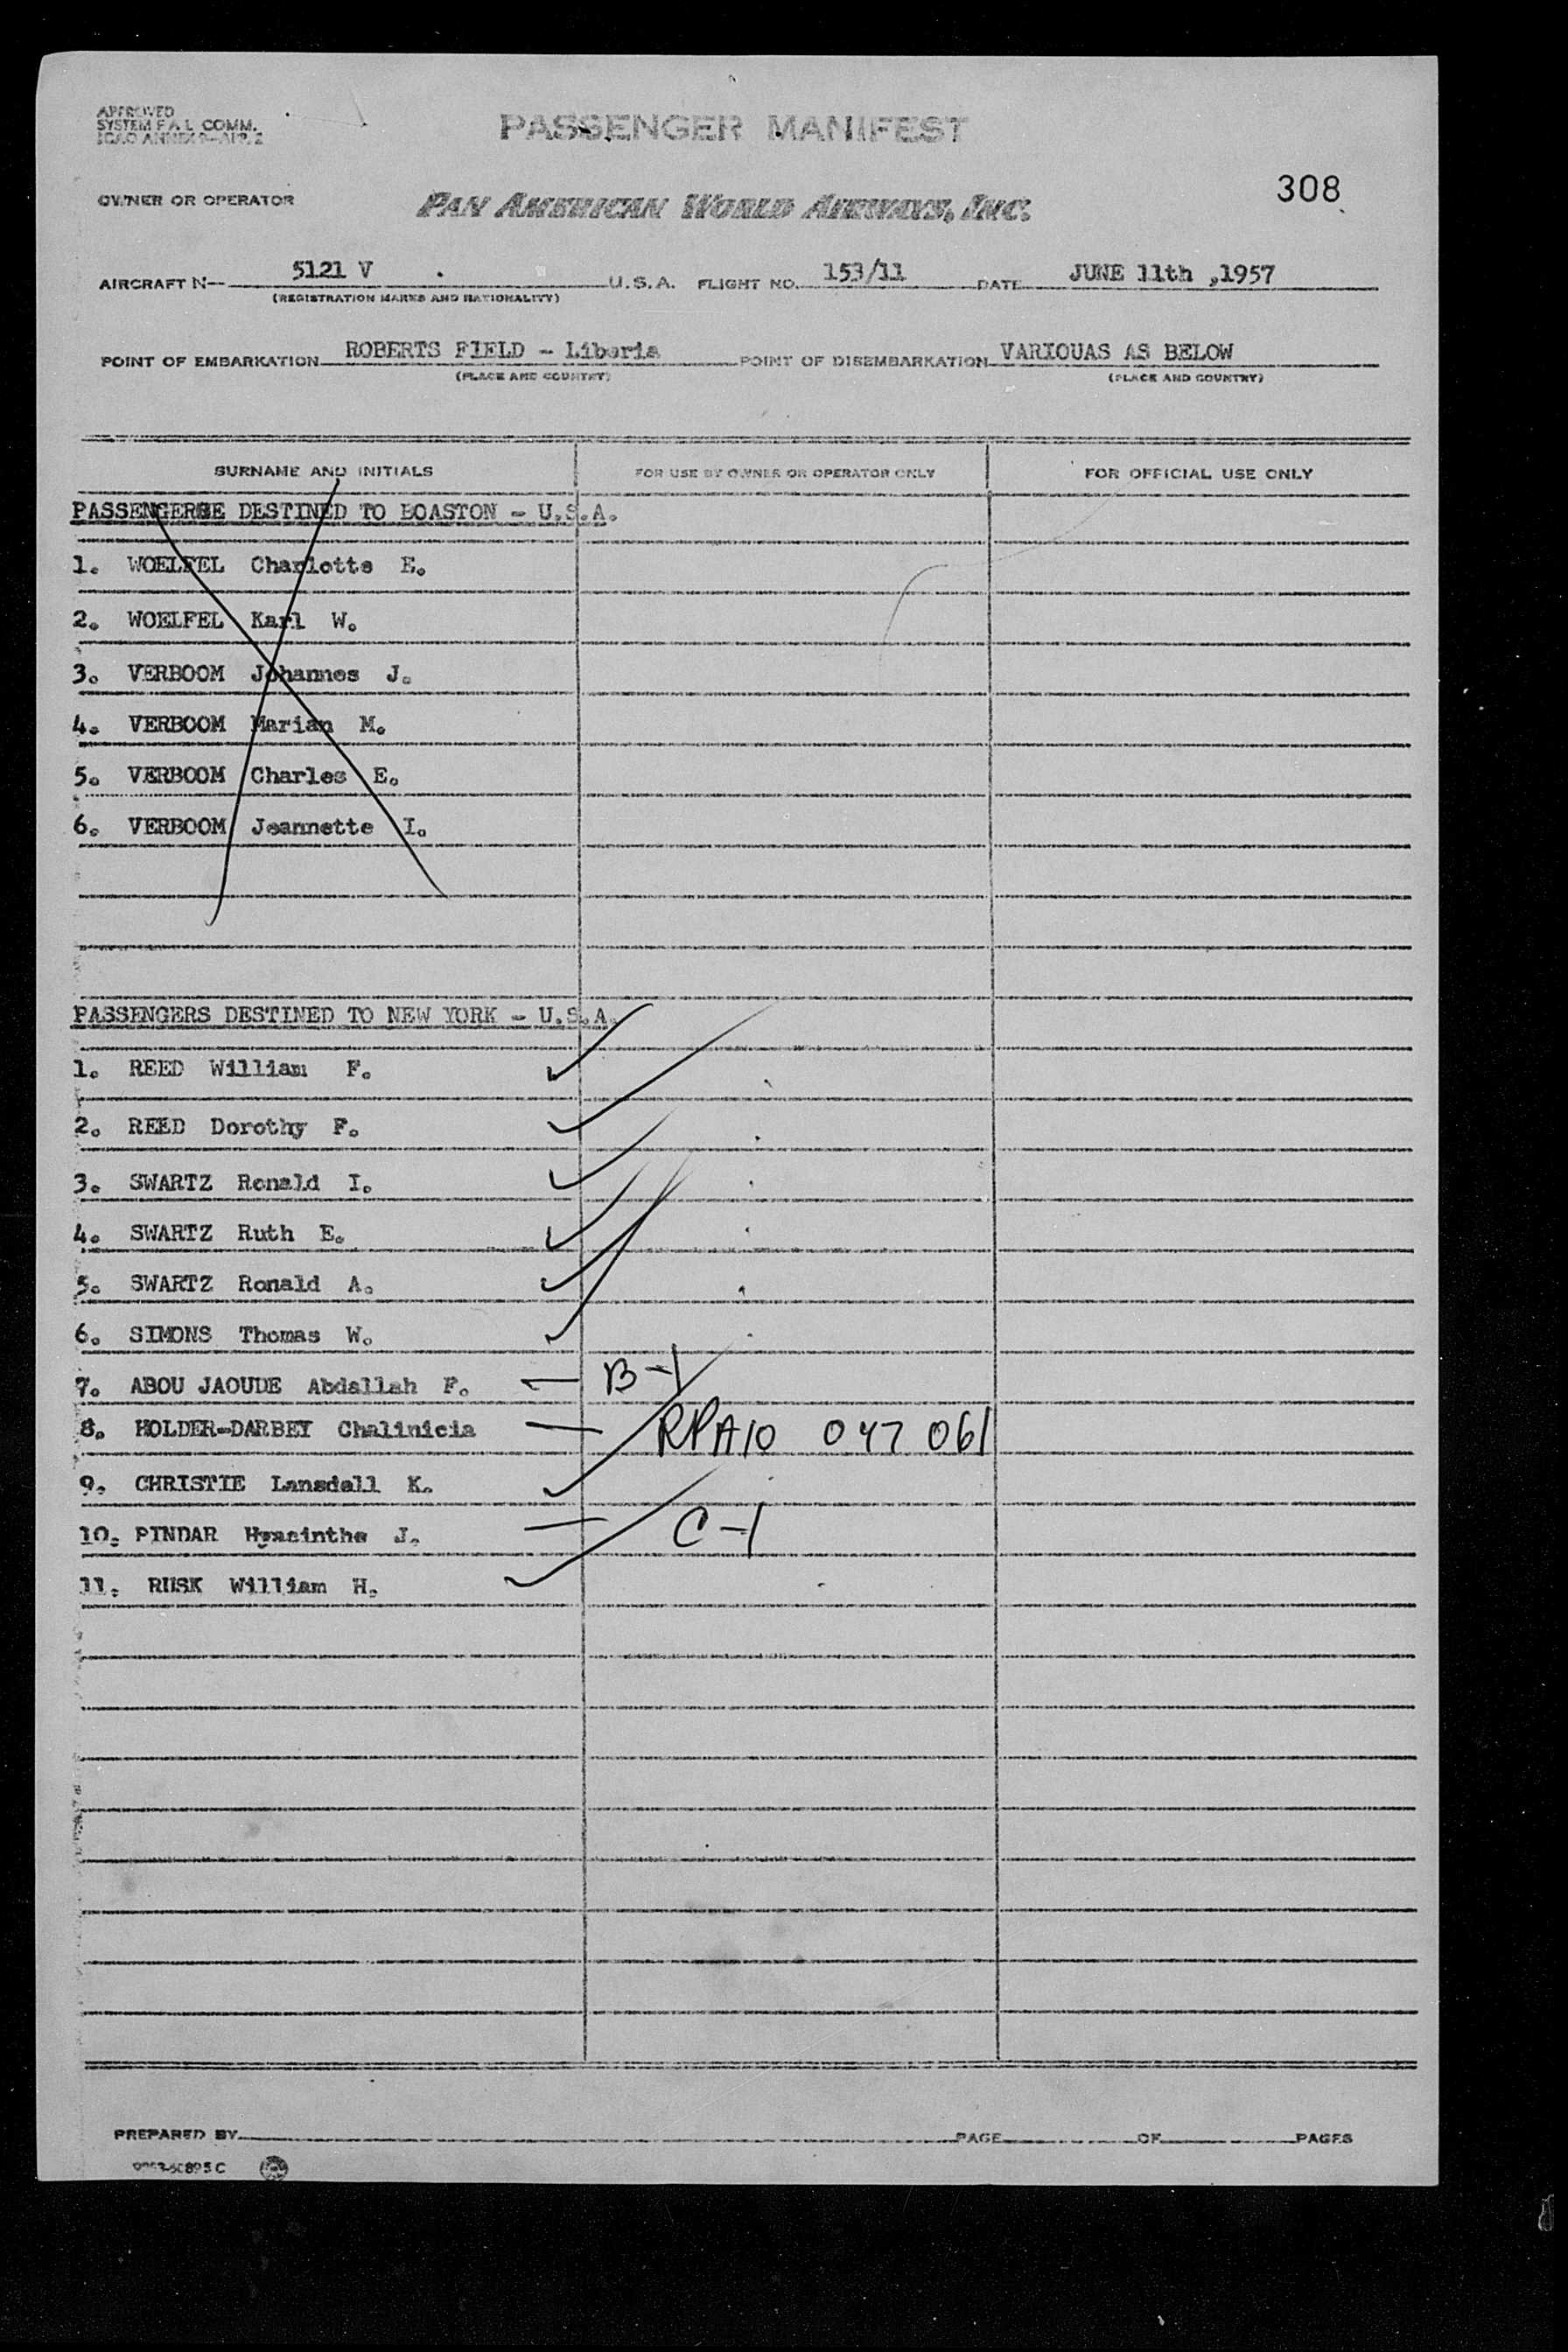 APPROVED
SYSTEM F.A.L. COMM.
ICAO ANNEX 9—APP. 2
PASSENGER MANIFEST
308
OWNER OR OPERATOR PAN AMERICAN WORLD AIRWAYS, INC.
AIRCRAFT N-- 5121 V . U.S.A. FLIGHT NO. 153/11 DATE JUNE 11th ,1957
(REGISTRATION MARKS AND NATIONALITY)
POINT OF EMBARKATION ROBERTS FIELD - Liberia POINT OF DISEMBARKATION VARIOUAS AS BELOW
(PLACE AND COUNTRY) (PLACE AND COUNTRY)
SURNAME AND INITIALS FOR USE BY OWNER OR OPERATOR ONLY FOR OFFICIAL USE ONLY
DESTINED TO BOASTON - U.S.A.
1. WOELFEL Charlotte E.
2. WOELFEL Karl W.
3. VERBOOM Johannes J.
4. VERBOOM Marian M.
5. VERBOOM Charles E.
6. VERBOOM Jeannette I.
PASSENGERS DESTINED TO NEW YORK - U.S.A.
1. REED William F.
2. REED Dorothy F.
3. SWARTZ Ronald I.
4. SWARTZ Ruth E.
5. SWARTZ Ronald A.
6. SIMONS Thomas W.
7. ABOU JAOUDE Abdallah F. — B-1
8. HOLDER-DARBEY Chalinicia — RPA10 047 061
9. CHRISTIE Lansdell K.
10. PINDAR Hyacinthe J. — C-1
11. RUSK William H.
PREPARED BY PAGE OF PAGES